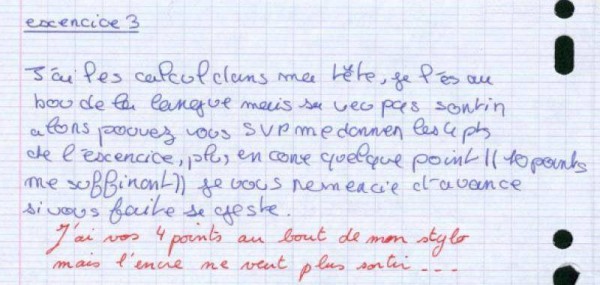 excencice 3
J'ai les calcul dans ma tête, je l'es au
bou de la langue mais sa veu pas sontin
alons pouvez vous SVP me donnen les 4 pts
de l'excencice, plu, en cone quelque point (( 10 points
me suffinont)) je vous remencie d'avance
si vous faite se geste.
J'ai vos 4 points au bout de mon stylo
mais l'encre ne veut plus sortir ---